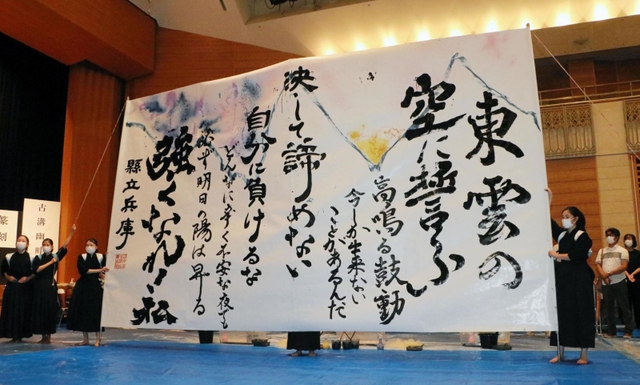 東雲の
空に誓う
高鳴る鼓動
今しか出来ない
ことがあるんだ
決して諦めない
自分に負けるな
どんなに辛く不安な夜も
必ず明日の陽は昇る
強くなれ
縣立兵庫
篆刻